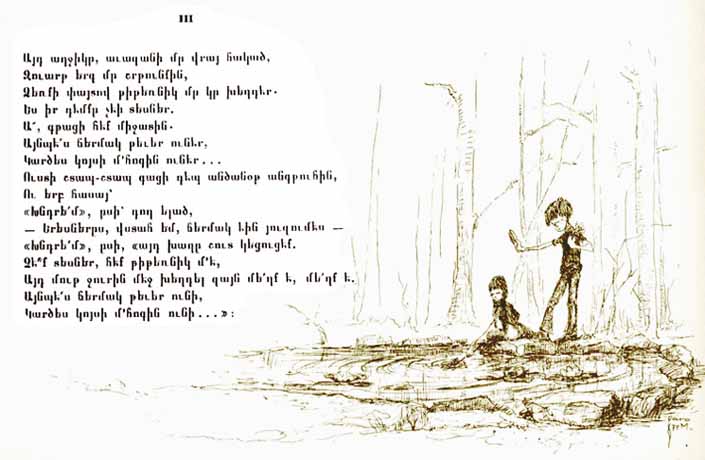 III
Այդ աղջիկը, աւազանի մը վրայ հակած,
Զուարթ երգ մը շրթունքին,
Ձեռքի փայտով թիթեռնիկ մը կը խեղդէր.
Ես իր դէմքը չէի տեսներ.
Ա՜, գթացի հէք միջատին.
Այնպէ՜ս ճերմակ թեւեր ունէր,
Կարծես կոյսի մ՚հոգին ունէր...
Ուստի շտապ-շտապ գացի դէպ անծանօթ անգթուհին,
Ու երբ հասայ՝
«Խնդրե՛մ», ըսի՝ դող ելած,
— Երեսներըս, վստահ եմ, ճերմակ էին յուզումէս —
«Խնդրե՛մ», ըսի, «այդ խաղը շուտ կեցուցէք.
Չէ՞ք տեսներ, հէք թիթեռնիկ մ՚է,
Այդ մութ ջուրին մէջ խեղդել զայն մե՛ղք է, մե՛ղք է.
Այնպէ՜ս ճերմակ թեւեր ունի,
Կարծես կոյսի մ՚հոգին ունի...»: